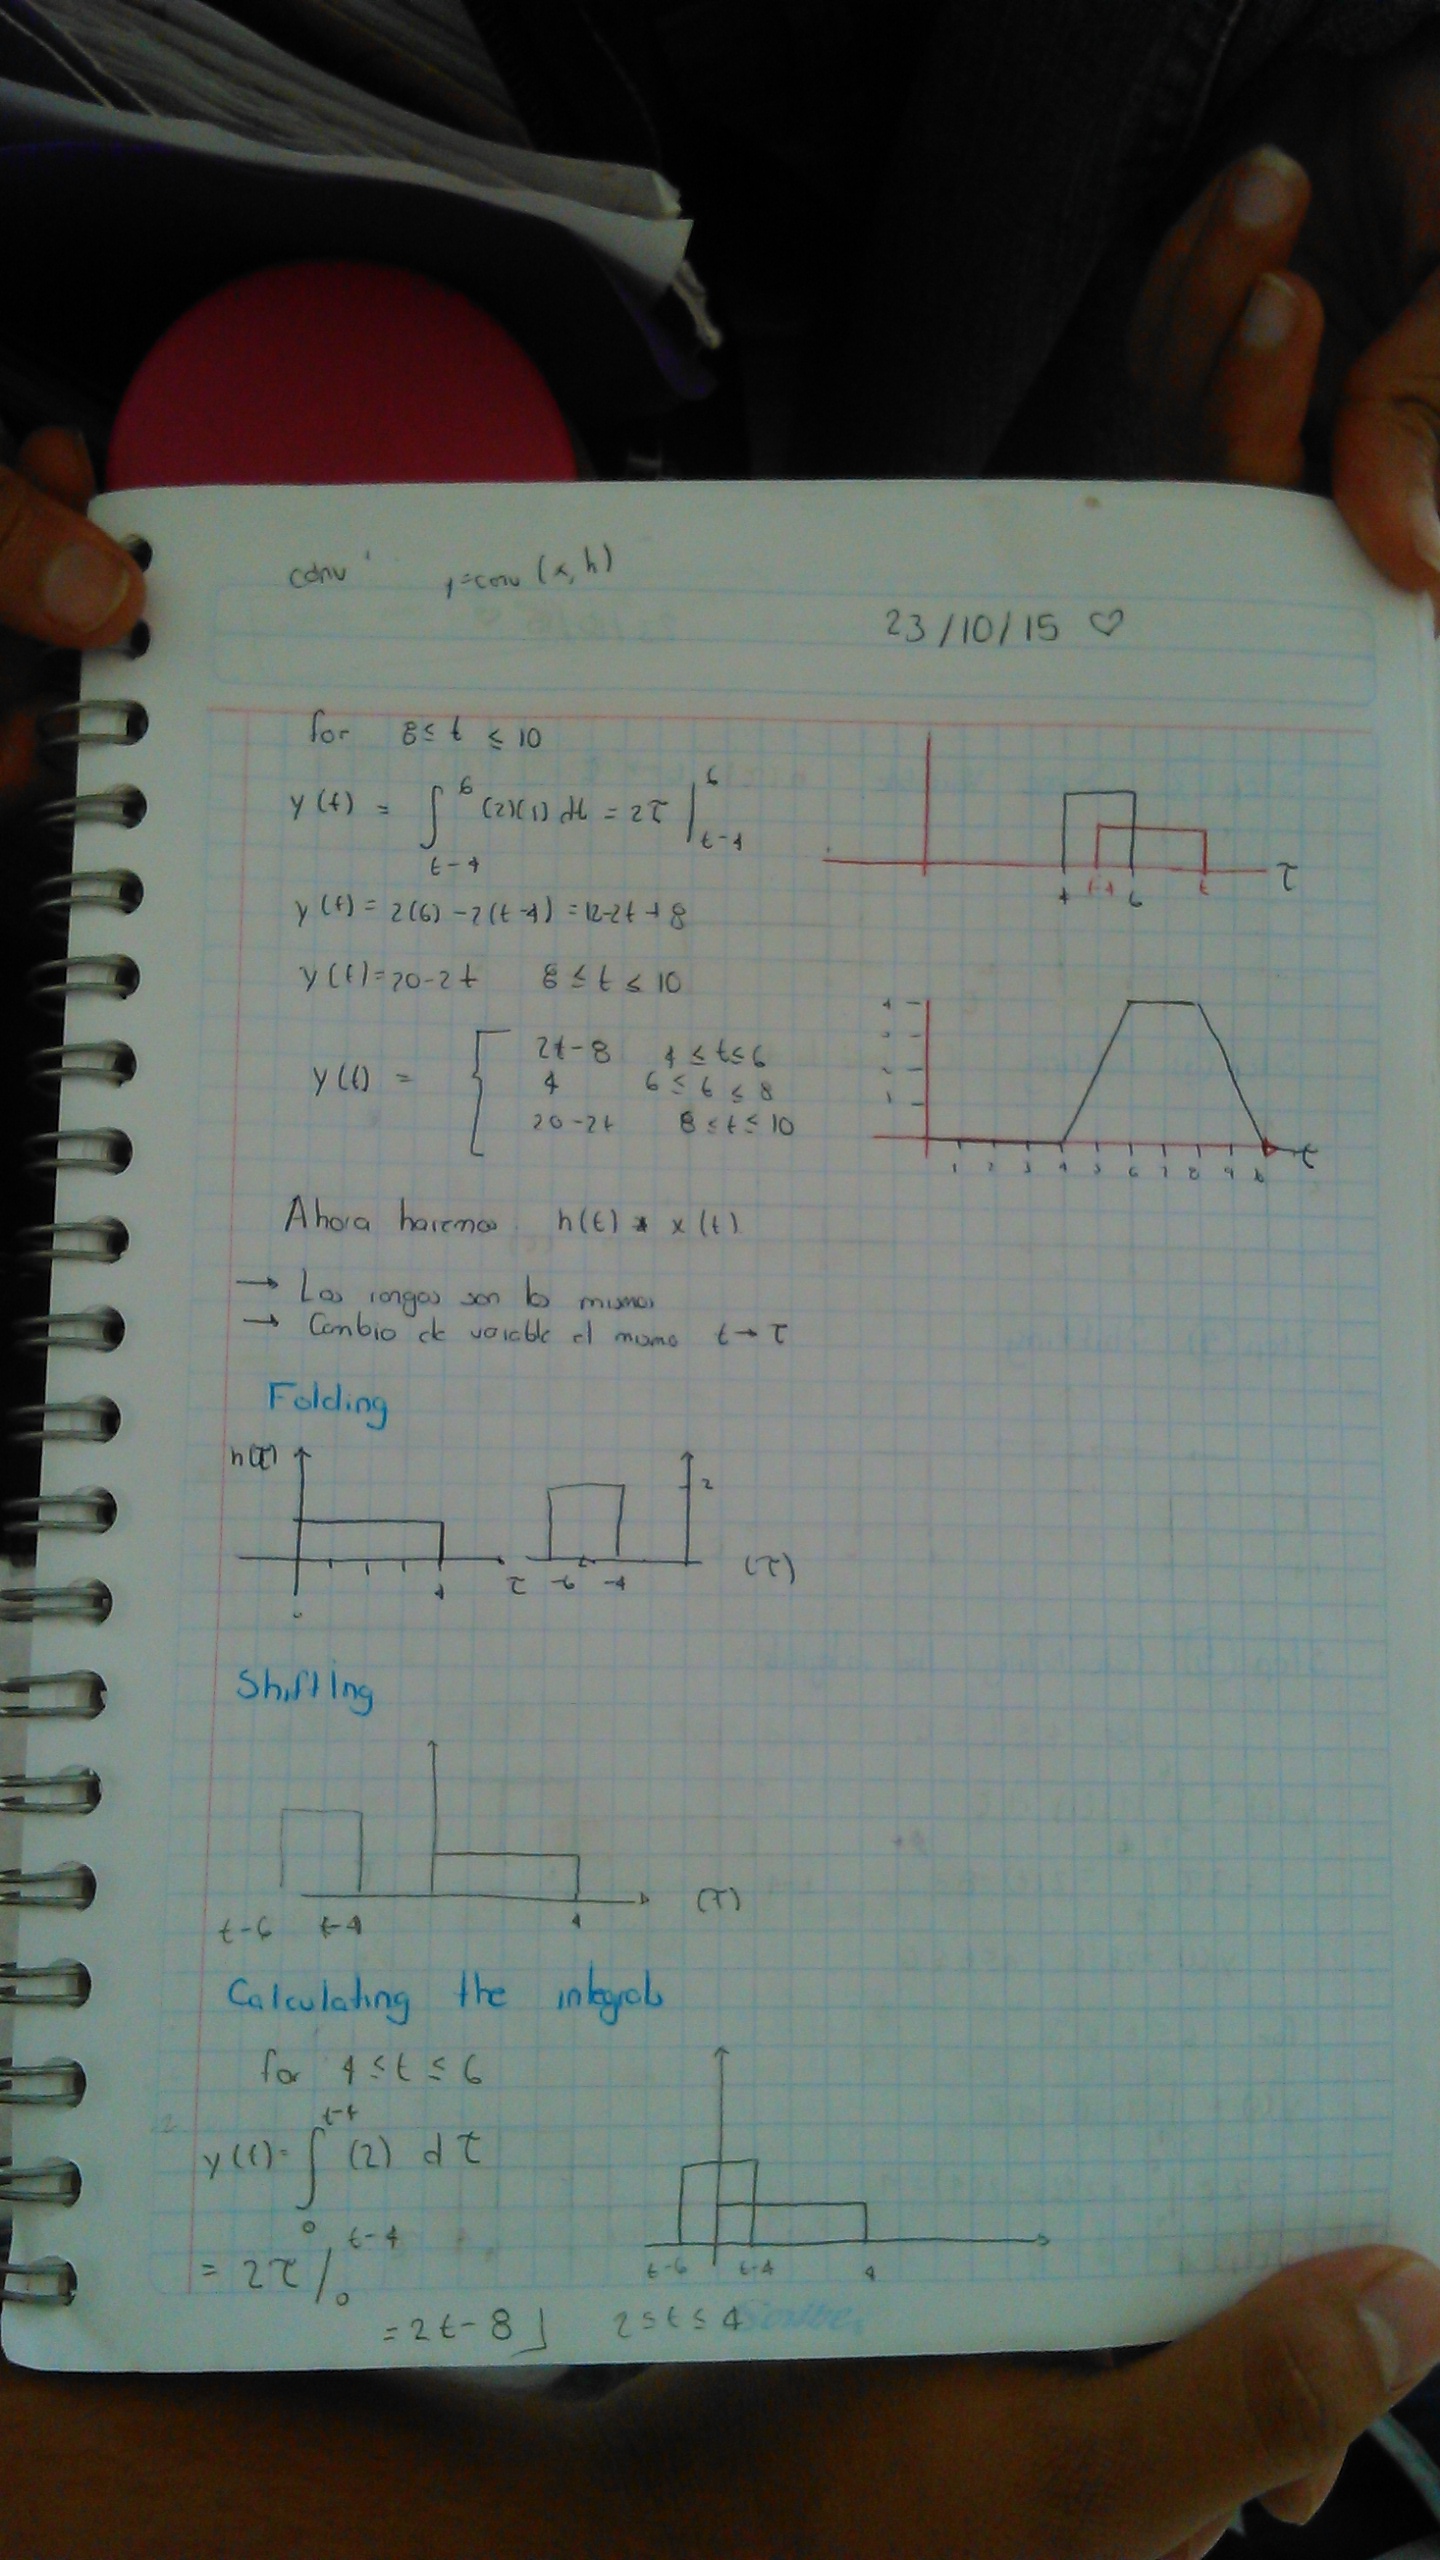 conv y=conv (x, h)
23/10/15 ♡
for 8≤ t ≤ 10
y(t) = ∫ 6 t-4 (2)(1) dτ = 2τ | 6 t-4
4 t-4 6 t τ
y(t) = 2(6) -2(t-4) =12-2t+8
y(t)=20-2t 8 ≤ t ≤ 10
y(t) = { 2t-8 4 ≤ t≤ 6
4 6 ≤ 6 ≤ 8
20-2t 8 ≤ t ≤ 10
4
2
1
1 2 3 4 5 6 7 8 9 10 t
Ahora haremos h(t) * x(t)
→ Los rangos son los mismos
→ Cambio de variable el mismo t → τ
Folding
h(τ) 2
4 τ -6 -4 (τ)
Shifting
t-6 t-4 4 (τ)
Calculating the integrals
for 4 ≤ t ≤ 6
y(t)= ∫ t-4 0 (2) dτ
= 2τ / t-4 0
t-6 t-4 4
= 2t-8 ⌋ 2 ≤ t ≤ 4
Scribe